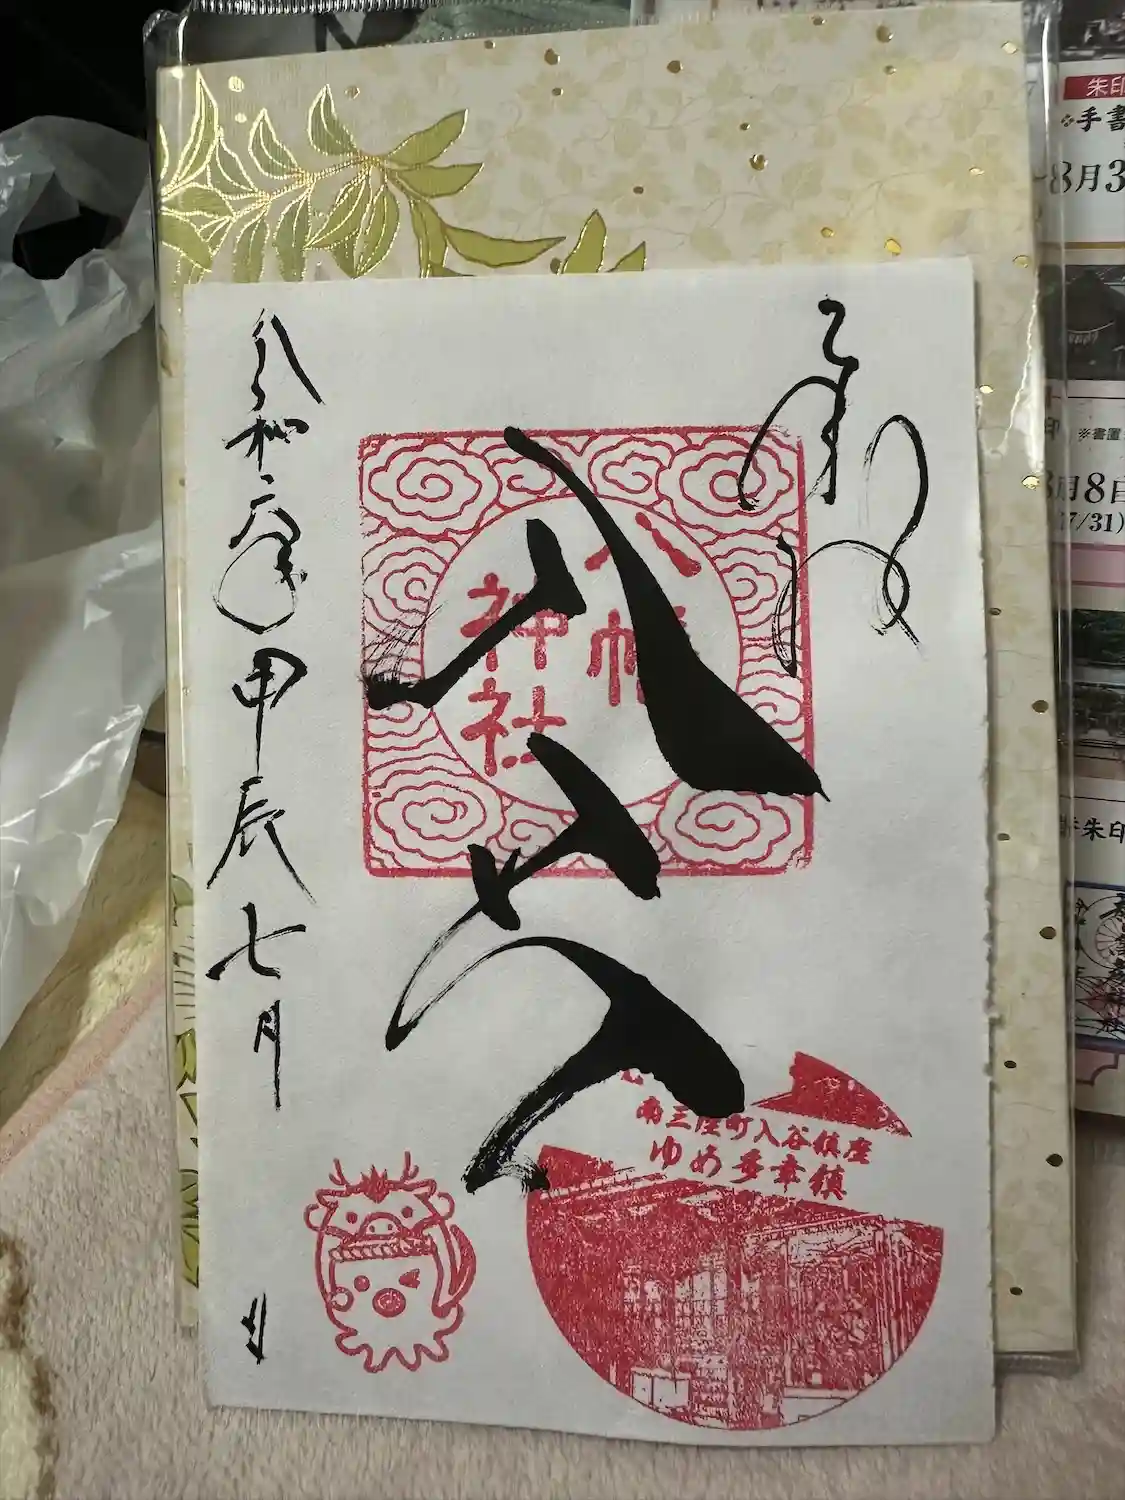 奉拝
八幡
神社
八幡
令和六年甲辰七月
日
南三陸町入谷鎮座
ゆめ多幸鎮
朱印
手書
8月3
印
※書置
8月8日
7/31)
朱印